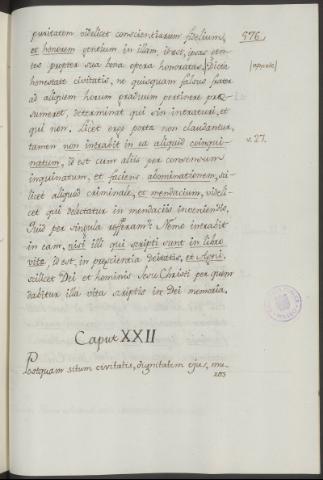 puritatem videlicet conscientiarum fidelium,
et honorem gentium in illam, id est, ipsas gen-
tes propter sua bona opera honoratas. Dicta
honestate civitatis, ne quisquam falsus frater
ad aliquem horum graduum pertinere præ-
sumeret, determinat qui sin intraturi, et
qui non. Licet ergo porta non claudantur,
tamen non intrabit in ea aliquid coinqui-
natum, id est cum aliis per consensum
inquinatum, et faciens abominationem, sci-
licet aliquid criminale, et mendacium, videli-
cet qui delectatur in mendaciis inveniendis.
Quid per singula referam? Nemo intrabit
in eam, nisi illi qui scripti sunt in libro
vitæ, id est, in præscientia deitatis, et Agni,
scilicet Dei et hominis Jesu Christi per quem
dabitur illa vita scriptis in Dei memoria.
576.
v. 27.
Caput XXII
Postquam situm civitatis, dignitatem ejus, mu-
ros